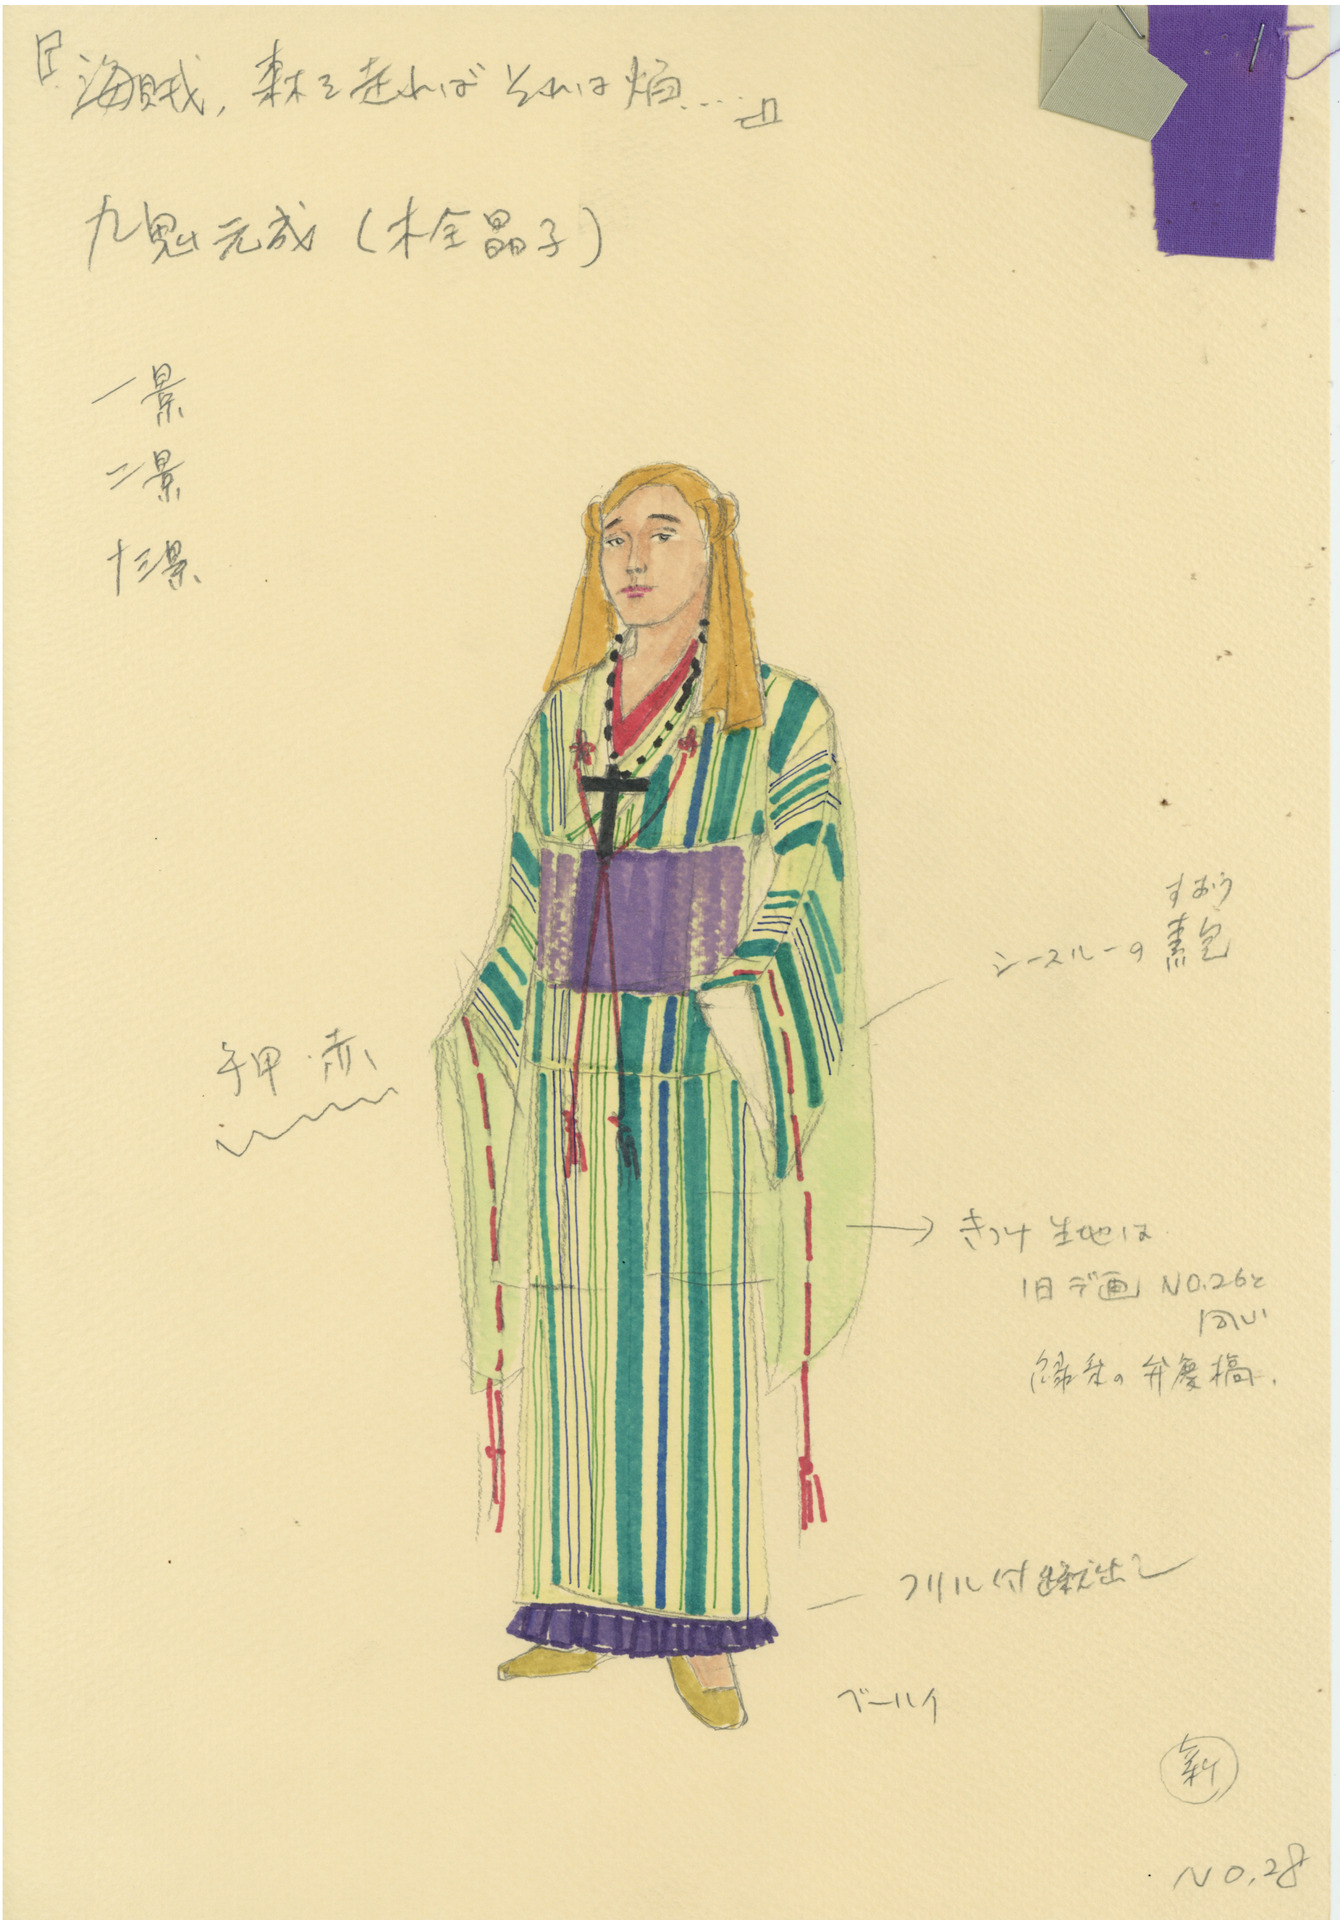 『海賊，森を走ればそれは焔…』
九鬼元成（木全晶子）
一景
二景
十三景
すおう
シースルーの素包
手甲・赤
きつけ 生地は
旧デ画 NO.26と
同じ
緑系の弁慶縞.
フリル付
新
NO.28